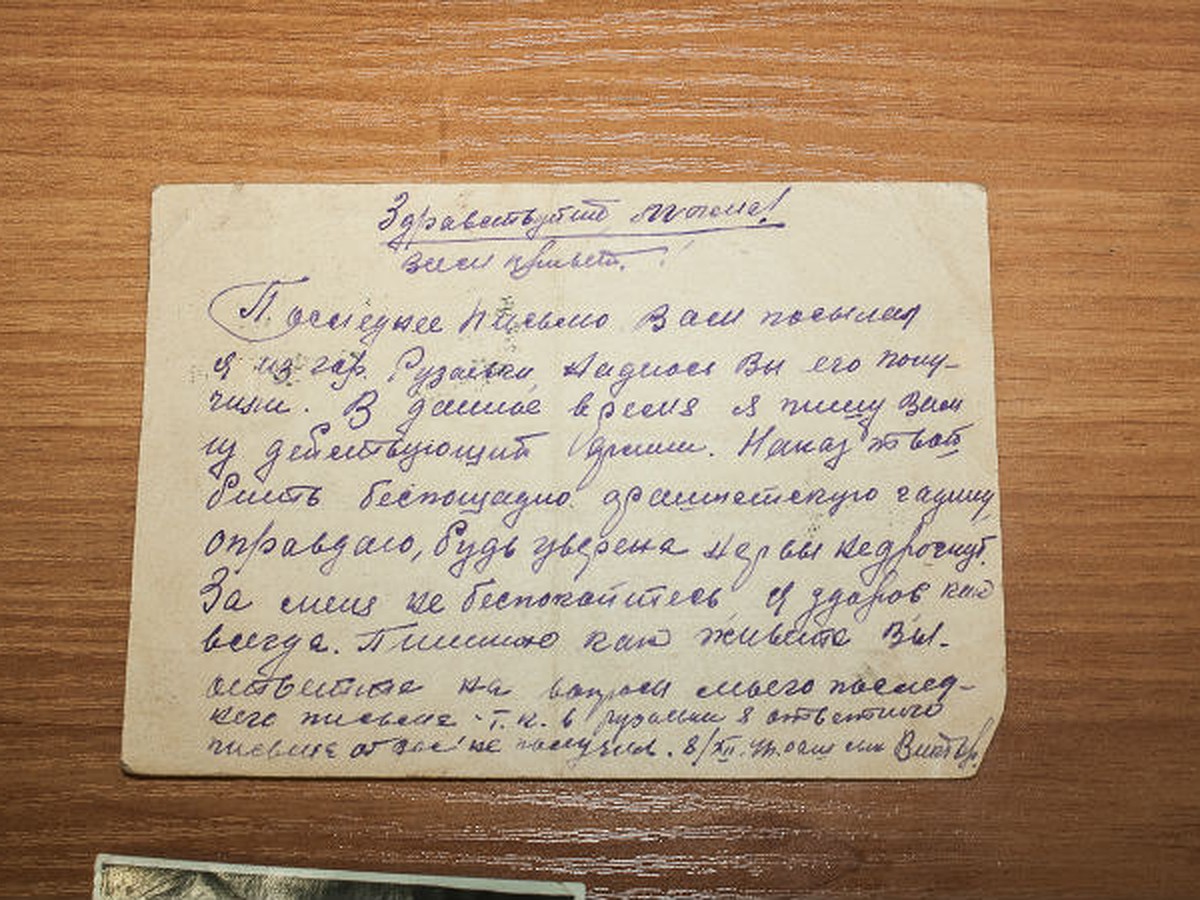 Здравствуйте, мама!
Вам привет!
Последнее письмо Вам посылал
я из гор. Рузаевки, надеюсь Вы его полу-
чили. В данное время я пишу Вам
из действующий Армии. Наказ твой
бить беспощадно фашистскую гадину
оправдаю, будь уверена нервы недрогнут.
За меня не беспокойтесь, я здоров как
всегда. Пишите как живите Вы.
ответьте на вопросы моего послед-
него письма т.к. в Рузаевки я ответного
письма от Вас не получил. 8/XII. Ваш сын Виктор.